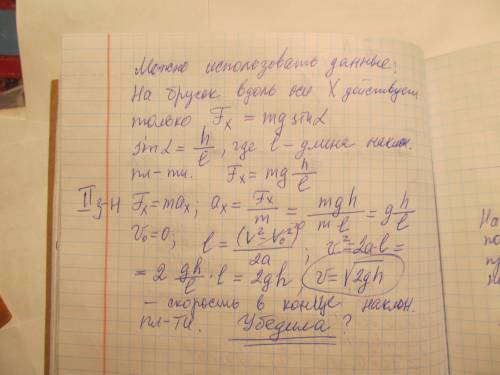 Можно использовать данные:
На брусок вдоль оси X действует
только Fₓ = mg sin α
sin α = h/l, где l – длина наклон.
пл-ти. Fₓ = mg h/l
II з-н Fₓ = maₓ; aₓ = Fₓ/m = mgh/ml = g h/l
v₀ = 0; l = (V² - V₀²)⁰/2a; v² = 2al =
= 2 gh/l · l = 2gh, v = √2gh
– скорость в конце наклон.
пл-ти. Убедила?
На